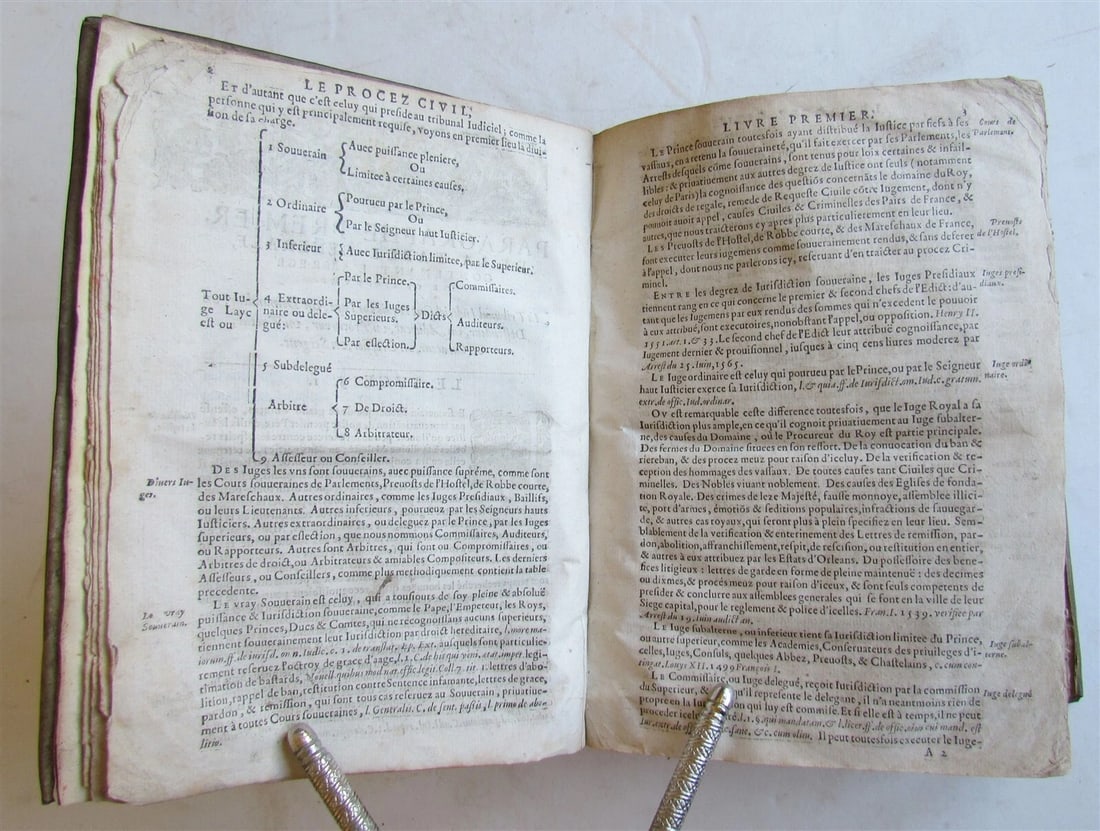 2
LE PROCEZ CIVIL,
ET d'autant que c'est celuy qui preside au tribunal Iudiciel; comme la
personne qui y est principalement requise, voyons en premier lieu la diui-
sion de sa charge.
Tout Iu-
ge Layc
est ou
1 Souuerain
Auec puissance pleniere,
Ou
Limitee à certaines causes,
2 Ordinaire
Pourueu par le Prince,
Ou
Par le Seigneur haut Iusticier.
3 Inferieur
Auec Iurisdiction limitee, par le Superieur.
4 Extraordi-
naire ou dele-
gué:
Par le Prince.
Par les Iuges
Superieurs.
Par eslection.
Dicts
Commissaires.
Auditeurs.
Rapporteurs.
5 Subdelegué
Arbitre
6 Compromissaire.
7 De Droict.
8 Arbitrateur.
9 Assesseur ou Conseiller.
Diuers Iu-
ges.
DES Iuges les vns sont souuerains, auec puissance supréme, comme sont
les Cours souueraines de Parlements, Preuosts de l'Hostel, de Robbe courte,
des Mareschaux. Autres ordinaires, comme les Iuges Presidiaux, Baillifs,
ou leurs Lieutenants. Autres inferieurs, pourueuz par les Seigneurs hauts
Iusticiers. Autres extraordinaires, ou deleguez par le Prince, par les Iuges
superieurs, ou par eslection, que nous nommons Commissaires, Auditeurs,
ou Rapporteurs. Autres sont Arbitres, qui sont ou Compromissaires, ou
Arbitres de droict, ou Arbitrateurs & amiables Compositeurs. Les derniers
Assesseurs, ou Conseillers, comme plus methodiquement contient la table
precedente.
Le vray
Souuerain.
LE vray Souuerain est celuy, qui a tousiours de soy pleine & absoluë
puissance & Iurisdiction souueraine, comme le Pape, l'Empereur, les Roys,
quelques Princes, Ducs & Comtes, qui ne recognoissans aucuns superieurs,
tiennent souuerainement leur Iurisdiction par droict hereditaire, l. more ma-
iorum. ff. de iurisd. omn. Iudic. c. 1. de translat. Ep. Ext. ausquels sont particulie-
rement reseruez l'octroy de grace d'aage, l. 1. C. de his qui veni. ætat. impet. legi-
timation de bastards, Nouell. quibus mod. nat. effic. legit. Coll. 7. tit. 1. lettres d'abo-
lition, rappel de ban, restitution contre Sentence infamante, lettres de grace,
pardon, & remission, qui sont tous cas reseruez au Souuerain, priuatiue-
ment à toutes Cours souueraines, l. Generalis C. de sent. passis, l. primo de abo-
litio.
LIVRE PREMIER.
3
LE Prince souuerain toutesfois ayant distribué la Iustice par fiefs à ses
vassaux, en a retenu la souueraineté, qu'il fait exercer par ses Parlements, les
Arrests desquels côme souuerains, sont tenus pour loix certaines & infail-
libles: & priuatiuement aux autres degrez de Iustice ont seuls (notamment
celuy de Paris) la cognoissance des questiõs concernãts le domaine du Roy,
des droicts de regale, remede de Requeste Ciuile côtre Iugement, dont n'y
pouuoit auoir appel, causes Ciuiles & Criminelles des Pairs de France, &
autres, que nous traicterons cy apres plus particulierement en leur lieu.
Cours de
Parlement.
LES Preuosts de l'Hostel, de Robbe courte, & des Mareschaux de France,
font executer leurs iugemens comme souuerainement rendus, & sans deferer
à l'appel, dont nous ne parlerons icy, reseruant d'en traicter au procez Cri-
minel.
Preuosts
de l'Hostel.
ENTRE les degrez de Iurisdiction souueraine, les Iuges Presidiaux
tiennent rang en ce qui concerne le premier & second chefs de l'Edict: d'au-
tant que les Iugemens par eux rendus des sommes qui n'excedent le pouuoir
à eux attribué, sont executoires, nonobstant l'appel, ou opposition. Henry II.
1551. art. 1. & 33. Le second chef de l'Edict leur attribuë cognoissance, par
Iugement dernier & prouisionnel, iusques à cinq cens liures moderez par
Arrest du 25. Iuin, 1565.
Iuges presi-
diaux.
LE Iuge ordinaire est celuy qui pourueu par le Prince, ou par le Seigneur
haut Iusticier exerce sa Iurisdiction, l. & quia. ff. de Iurisdict. om. Iud. c. gratum.
extr. de offic. Iud. ordinar.
Iuge ordi-
naire.
OV est remarquable ceste difference toutesfois, que le Iuge Royal a sa
Iurisdiction plus ample, en ce qu'il cognoit priuatiuement au Iuge subalter-
ne, des causes du Domaine, où le Procureur du Roy est partie principale.
Des fermes du Domaine situees en son ressort. De la conuocation du ban &
riereban, & des procez meuz pour raison d'iceluy. De la verification & re-
ception des hommages des vassaux. De toutes causes tant Ciuiles que Cri-
minelles. Des Nobles viuant noblement. Des causes des Eglises de fonda-
tion Royale. Des crimes de leze Majesté, fausse monnoye, assemblee illici-
te, port d'armes, émotiõs & seditions populaires, infractions de sauuegar-
de, & autres cas royaux, qui seront plus à plein specifiez en leur lieu. Sem-
blablement de la verification & enterinement des Lettres de remission, par-
don, abolition, affranchissement, respit, de rescision, ou restitution en entier,
& autres à eux attribuez par les Estats d'Orleans. Du possessoire des bene-
fices litigieux: lettres de garde en forme de pleine maintenuë: des decimes
ou dixmes, & procés meuz pour raison d'iceux, & sont seuls competens de
presider & conclurre aux assemblees generales qui se font en la ville de leur
Siege capital, pour le reglement & police d'icelles. Fran. I. 1539. verifiee par
Arrest du 19. Iuin audict an.
LE Iuge subalterne, ou inferieur tient sa Iurisdiction limitee du Prince,
ou autre superieur, comme les Academies, Conseruateurs des priuileges d'i-
celles, Iuges, Consuls, quelques Abbez, Preuosts, & Chastelains, c. cum con-
tingat. Louys XII. 1499 François I.
Iuge subal-
terne.
LE Commissaire, ou Iuge delegué, reçoit Iurisdiction par la commission
du Superieur, & qu'il represente le delegant, il n'a neantmoins rien de
propre en la on qui luy est commise. Et si elle est à temps, il ne peut
proceder icelle té. l. 1. §. qui mandatam. & l. licet. ff. de offic. eius cui mand. est
Iuge delegué
c. cum olim. Il peut toutesfois executer le Iuge-
A 2